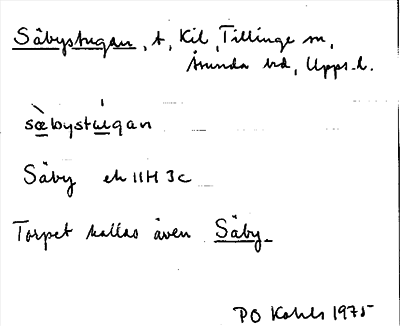 Såbystugan, t, Kil, Tillinge sn,
Åsunda hd, Upps. l.
sæ̀bystúgan
Såby ek 11H 3c
Torpet kallas även Såby.
PO Kahls 1975